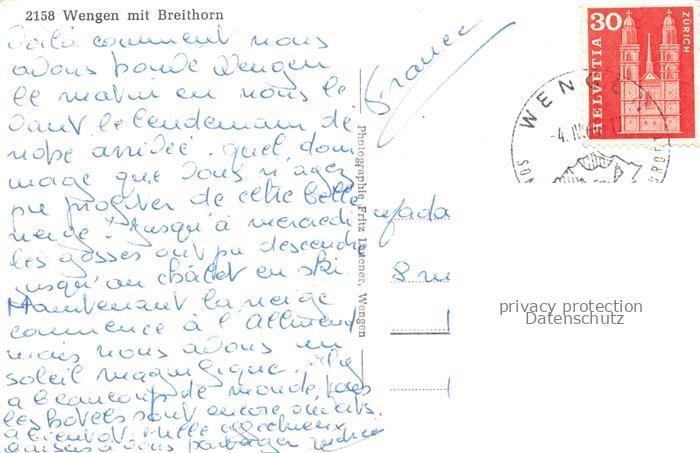 2158 Wengen mit Breithorn
Voilà comment nous
avons trouvé Wengen
le matin en nous le
vant le lendemain de
notre arrivée. quel dom
mage que vous n'ayez
pu profiter de cette belle
neige. Jusqu'à mercredi
les gosses ont pu descendre
jusqu'au châlet en ski
Maintenant la neige
commence à l'Allmend
mais nous avons un
soleil magnifique. Il y
a beaucoup de monde, tous
les hotels sont encore ouverts.
à bientôt Mille affectueux
baisers à vous partager
France
Photographie Fritz Lauener, Wengen
8 rue
30
HELVETIA
ZÜRICH
WENGEN
-4. III.
privacy protection
Datenschutz